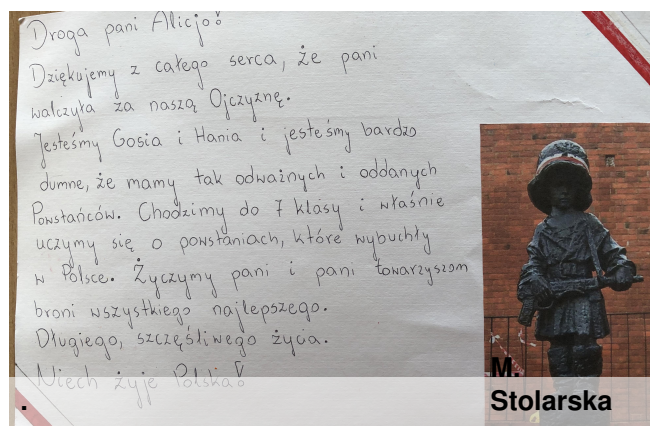 Droga pani Alicjo!
Dziękujemy z całego serca, że pani
walczyła za naszą Ojczyznę.
Jesteśmy Gosia i Hania i jesteśmy bardzo
dumne, że mamy tak odważnych i oddanych
Powstańców. Chodzimy do 7 klasy i właśnie
uczymy się o powstaniach, które wybuchły
w Polsce. Życzymy pani i pani towarzyszom
broni wszystkiego najlepszego.
Długiego, szczęśliwego życia.
Niech żyje Polska!
.
M.
Stolarska